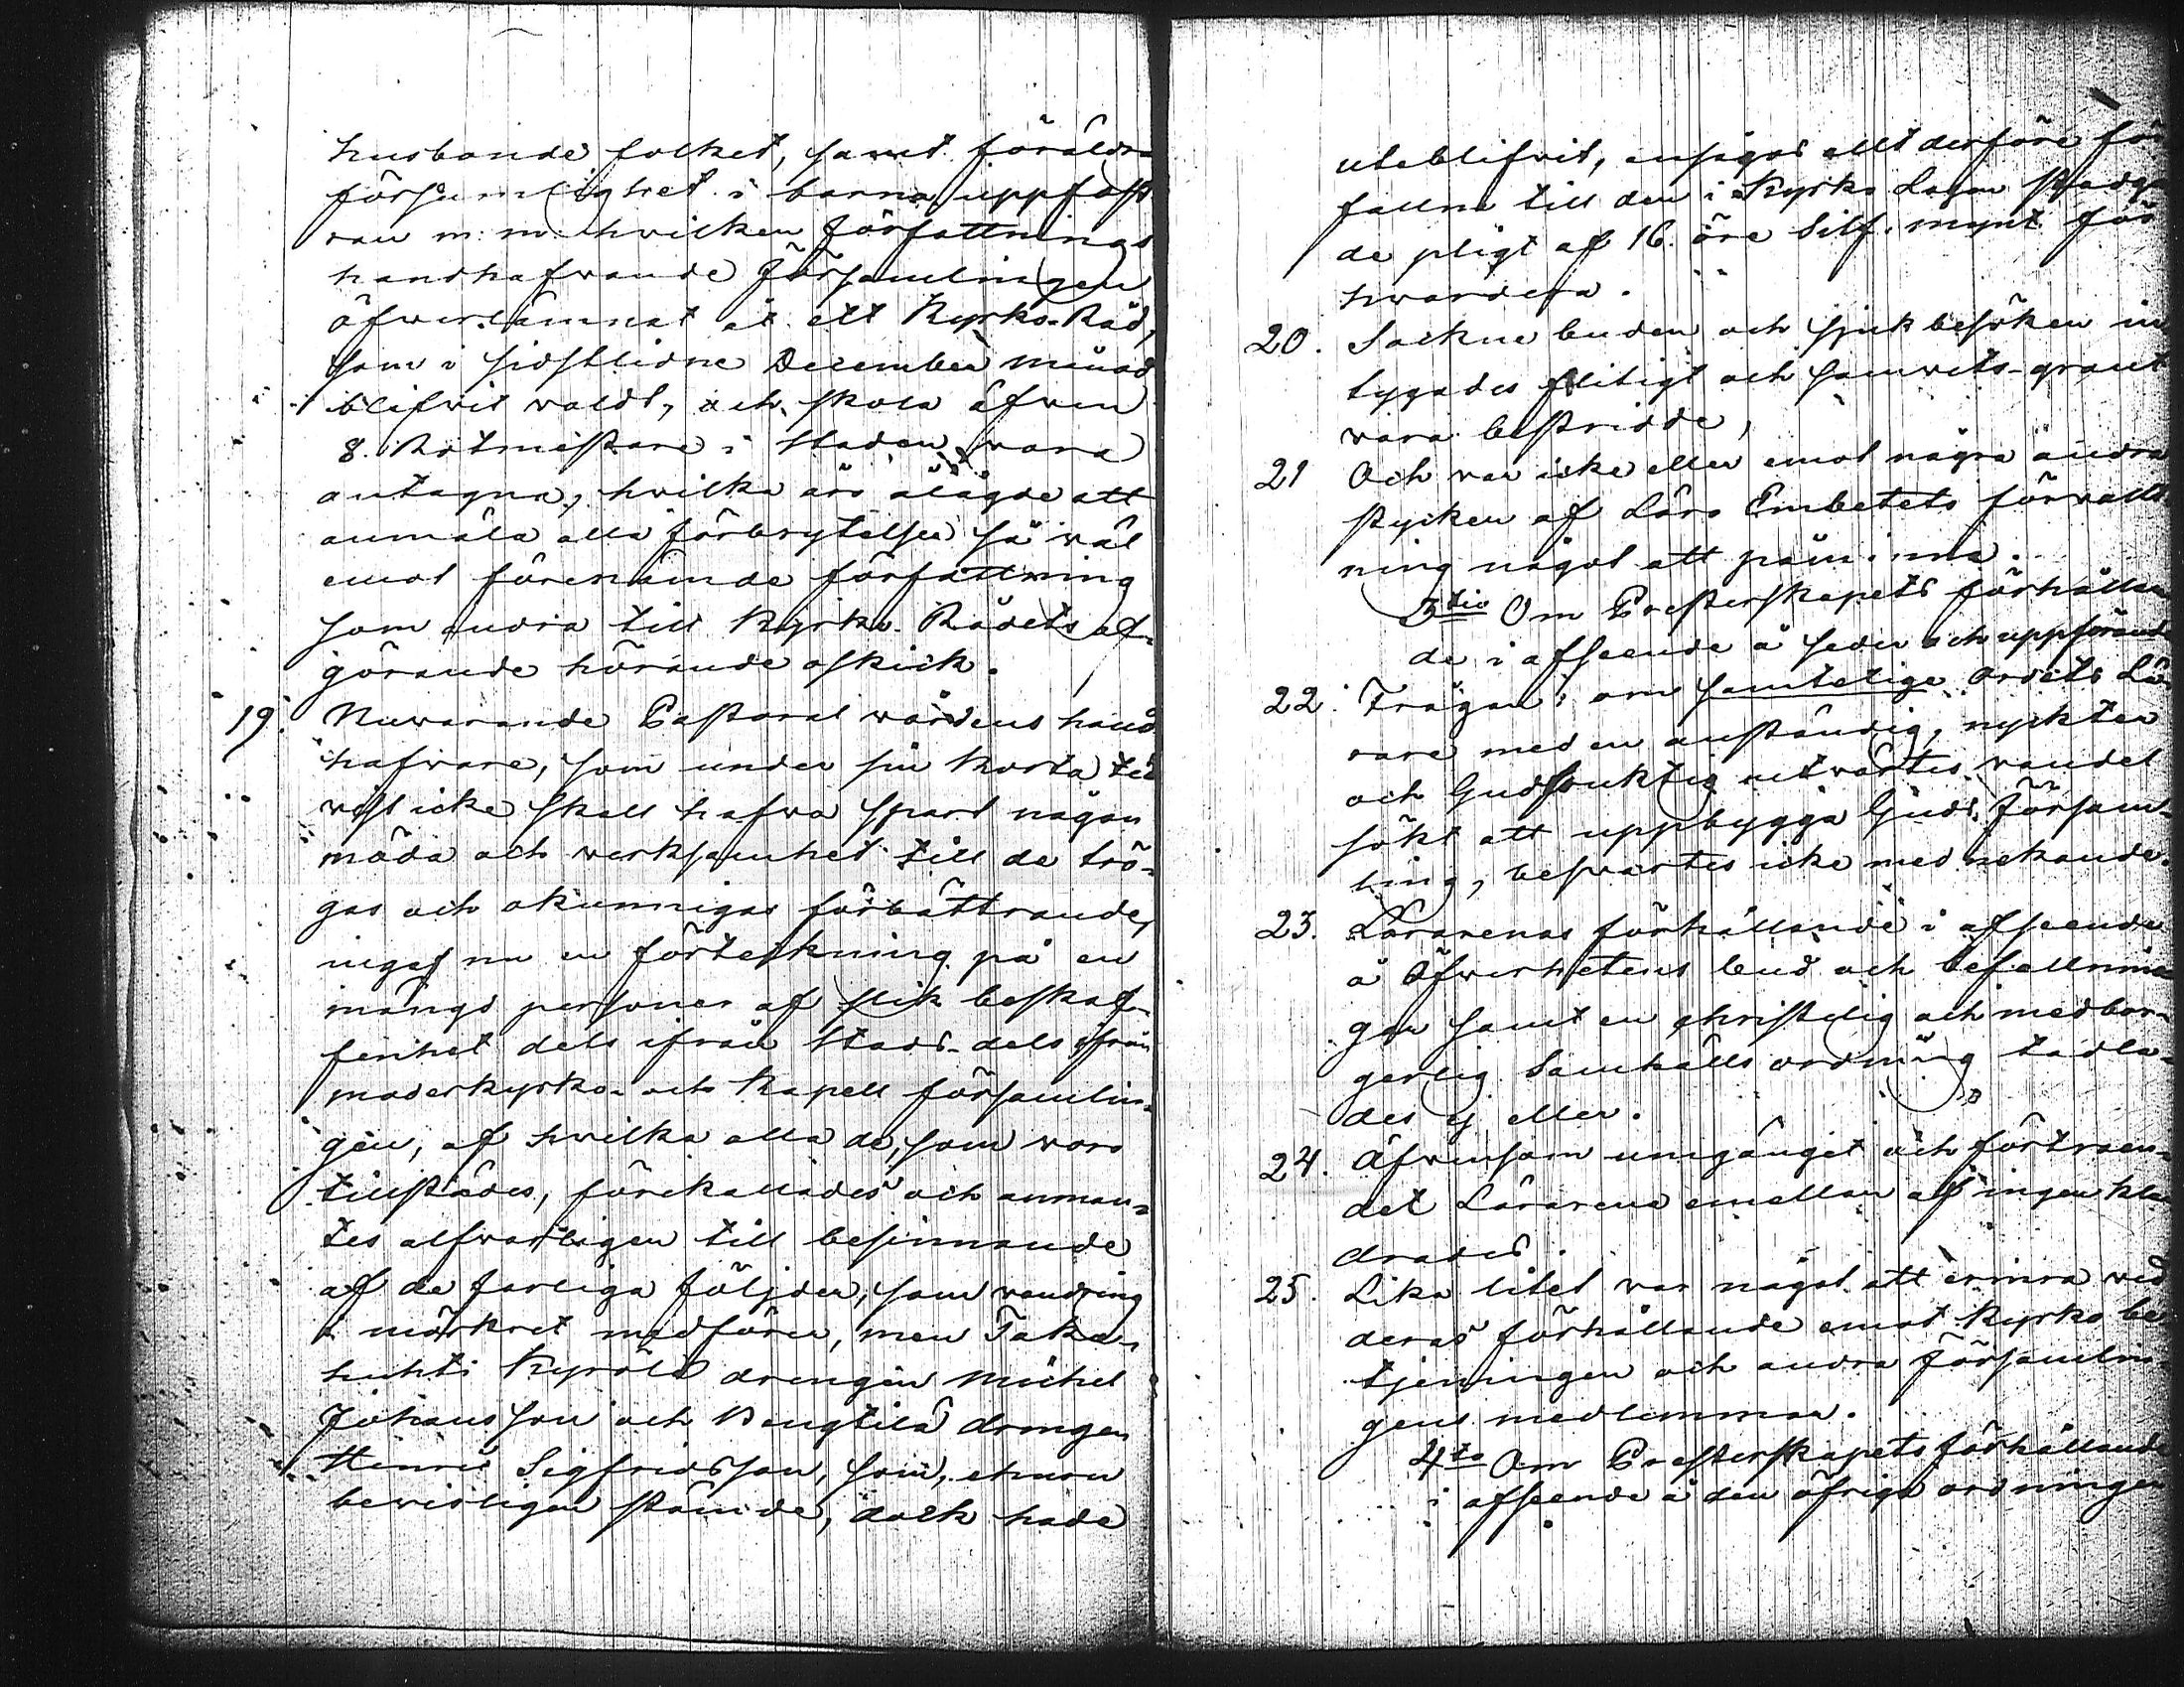 husbonde folket, samt föräldra
försumlighet i barna uppfost
ran m: m: hvilken Författnings
handhafwande Församlingen
öfwerlämnat åt ett Kyrko-Råd,
som i sidstlidne December månad
blifwit waldt, och skola äfwen
8. Rotmästare i Staden wara
antagna, hvilka äro ålagde att
anmäla alla förbrytelser så wäl
emot förenämde författning
som andra till Kyrko-Rådets af-
görande hörande oskick.
19. Nuwarande Pastoral wårdens hand
hafware, som under sin korta tid
wist icke skall hafwa spart någon
möda och werksamhet till de trö-
gas och okunnigas förbättrande,
ingaf nu en förteckning på en
mängd personer af slik beskaf-
fenhet dels ifrån Stads- dels ifrån
moderkyrko- och Kapell församlin-
gen, af hvilka alla de, som woro
tillstädes, förekallades och anman-
tes alfwarligen till besinnande
af de farliga följder, som wandring
i mörkret medförer, men Taka-
huhti Kyrölä drengen Michel
Johansson och Bengtilä drengen
Henric Sigfridsson, som, ehuru
bevisligen stämde, dock hade
uteblifwit, ansågos allt derföre för
fallne till den i Kyrko Lagen stadga
de pligt af 16. öre Silf: mynt för
hwardera.
20. Sockne buden och sjuk besöken in
tygades flitigt och samwets-grant
wara bestridde,
21 Och war icke eller emot några andra
stycken af Läro Embetets förvalt
ning något att påminna.
3tio Om Presterskapets förhållan
de i afseende å seder och uppförande
22. Frågan: om samtelige Ordets Lä-
rare med en anständig, nyckter
och Gudfruktig utwärtes wandel
sökt att uppbygga Guds Försam-
ling, beswartes icke med nekande.
23. Lärarenas förhållande i afseende
å Öfwerhetens bud och befallnin
gar samt en christelig och medbor-
gerlig Samhälls ordning tadla-
des ej eller.
24. Äfwensom umgänget och förtroen-
det Lärarena emellan af ingen klan
drades.
25. Lika litet war något att erinra wid
deras förhållande emot Kyrko be
tjeningen och andra Församlin-
gens medlemmar.
4to Om Presterskapets förhållande
i afseende å den öfriga ordningen